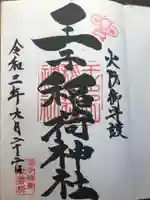 火防御守護
王子稲荷神社
令和三年九月二十三日